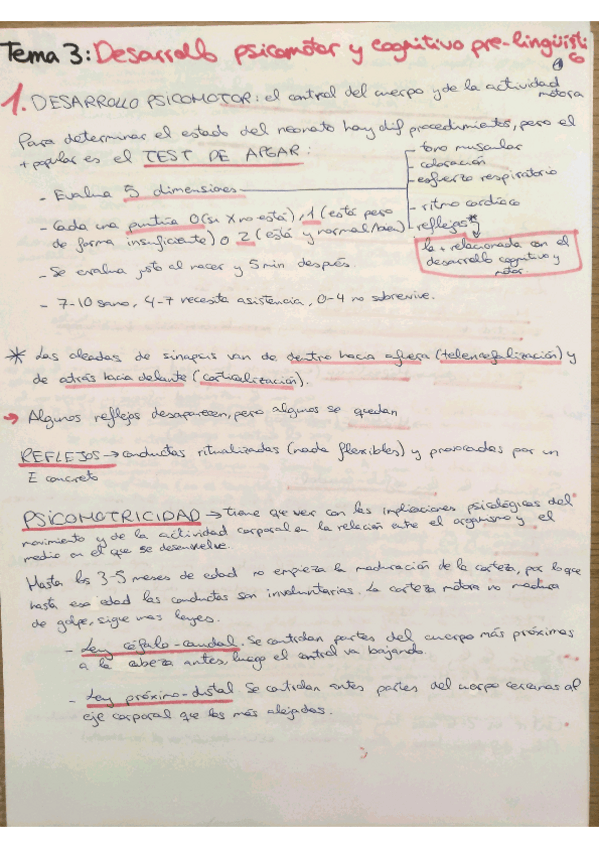 Tema 3: Desarrollo psicomotor y cognitivo pre-lingüísti
co
1
1. DESARROLLO PSICOMOTOR: el control del cuerpo y de la actividad
motora
Para determinar el estado del neonato hay dif procedimientos, pero el
+ popular es el TEST DE APGAR:
- Evalua 5 dimensiones
- tono muscular
- coloración
- esfuerzo respiratorio
- ritmo cardíaco
- reflejos*
la + relacionada con el
desarrollo cognitivo y
motor.
- Cada una puntúa 0 (si X no está), 1 (está pero
de forma insuficiente) o 2 (está y normal/bien)
- Se evalua justo al nacer y 5 min después.
- 7-10 sano, 4-7 necesita asistencia, 0-4 no sobrevive.
* Las oleadas de sinapsis van de dentro hacia afuera (telencefalización) y
de atrás hacia delante (corticalización).
→ Algunos reflejos desaparecen, pero algunos se quedan
REFLEJOS → conductas ritualizadas (nada flexibles) y provocadas por un
E concreto
PSICOMOTRICIDAD → tiene que ver con las implicaciones psicológicas del
movimiento y de la actividad corporal en la relación entre el organismo y el
medio en el que se desenvuelve.
Hasta los 3-5 meses de edad no empieza la maduración de la corteza, por lo que
hasta esa edad las conductas son involuntarias. La corteza motora no madura
de golpe, sigue unas leyes.
- Ley céfalo-caudal. Se controlan partes del cuerpo más próximas
a la cabeza antes, luego el control va bajando.
- Ley próximo-distal. Se controlan antes partes del cuerpo cercanas al
eje corporal que las más alejadas.